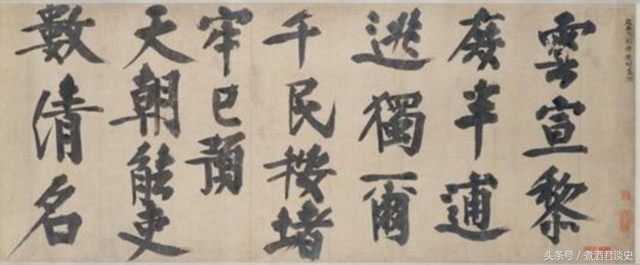 雲宣黎
庶半逋
逃獨爾
千民按堵
牢已預
天朝能吏
數清名
头条号 / 煮酒君谈史